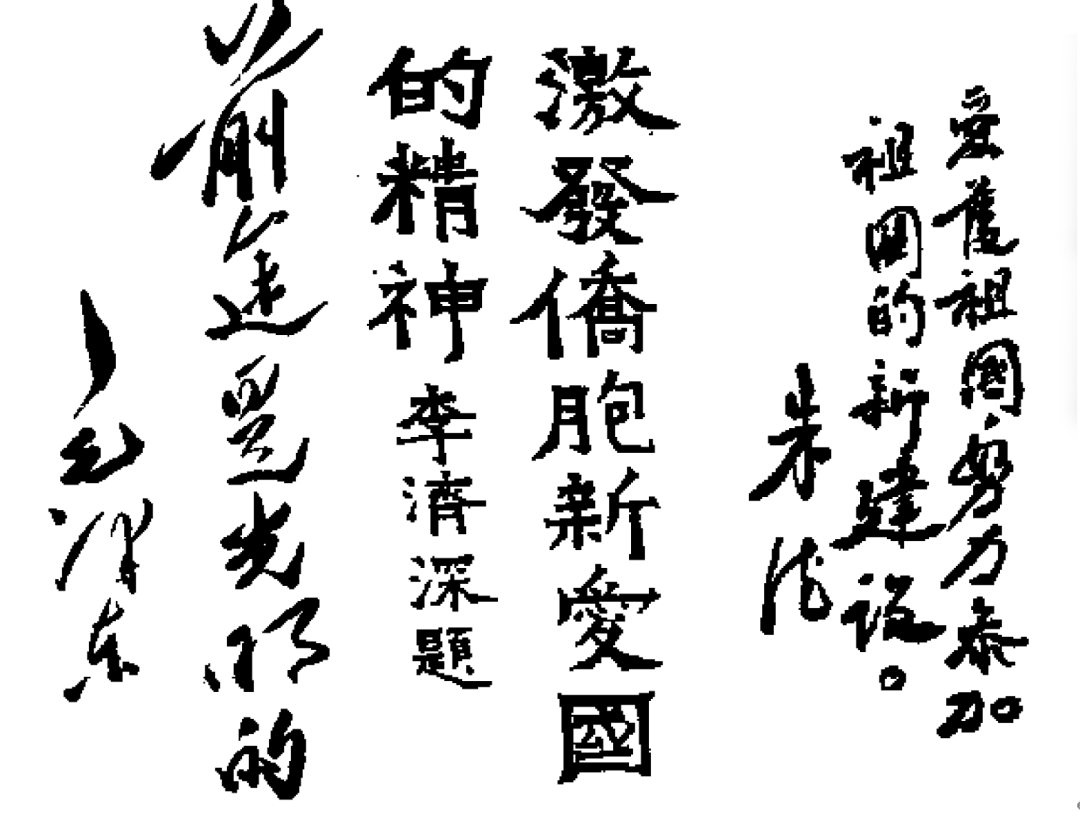 爱護祖國努力参加
祖国的新建设。
朱德
激發僑胞新愛國
的精神 李濟深題
前途是光明的
毛泽东